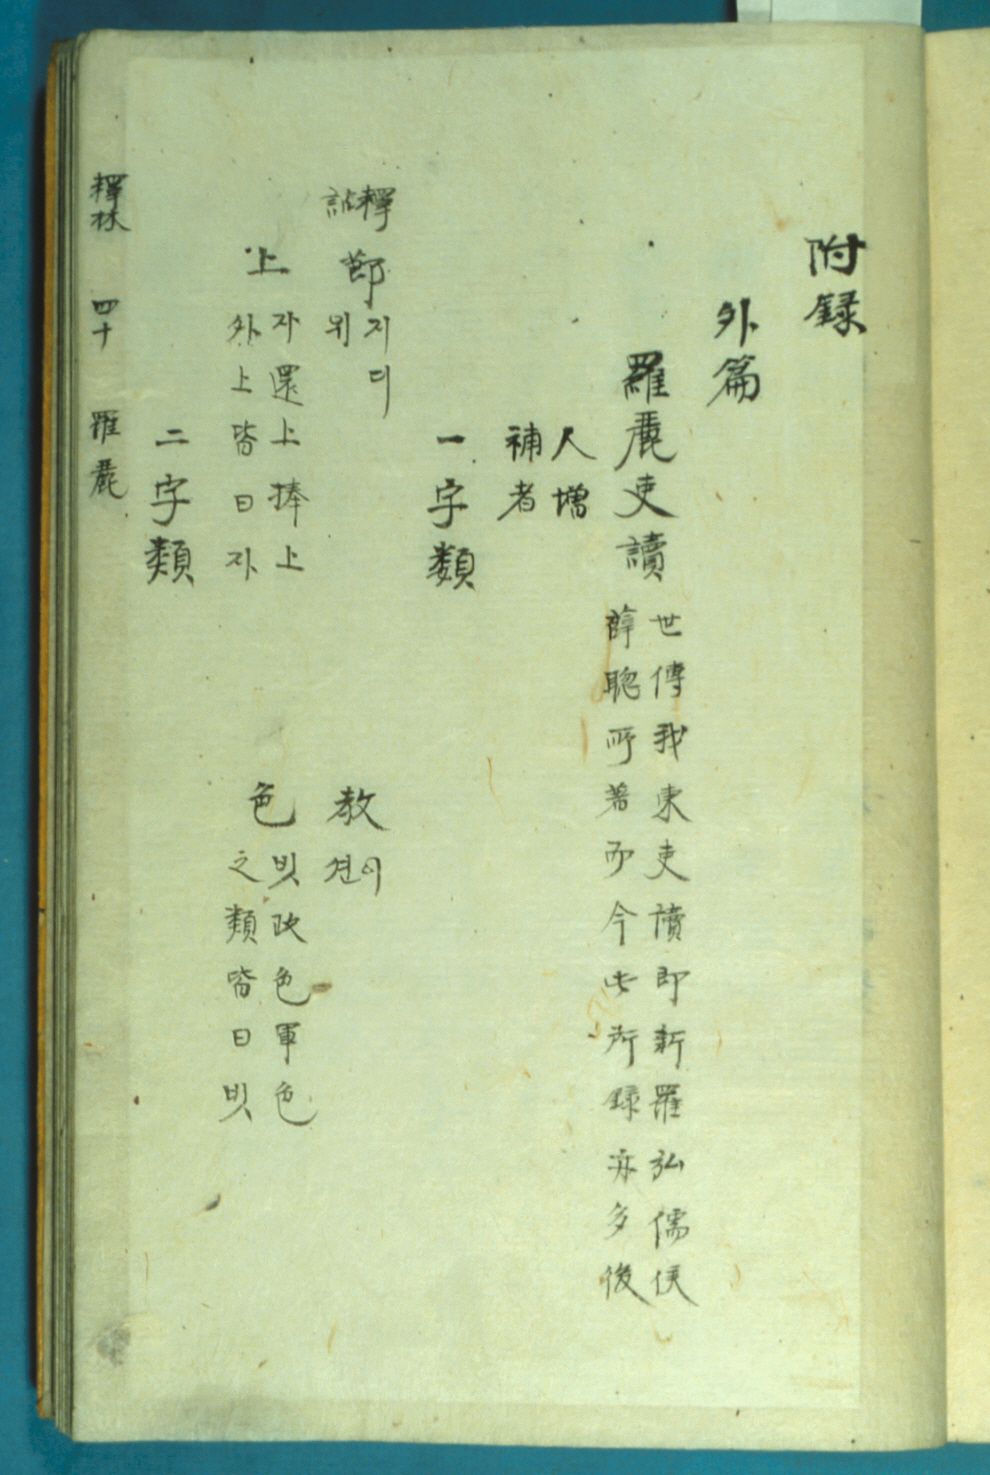 附錄
外篇
羅麗吏讀 世傳我東吏讀即新羅弘儒侯
薛聰所著而今此所錄亦多後
人增
補者
一字類
釋
詁
節 지
위 디
敎 이
견
上 자還上捧上
外上皆曰자
色 빗政色軍色
之類皆曰빗
二字類
釋林 四十 羅麗